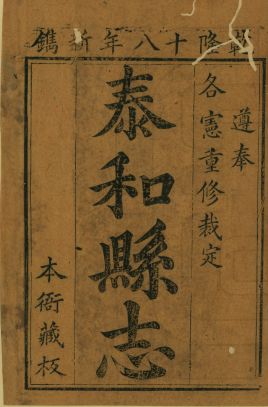 乾隆十八年新鐫
遵奉
各憲重修裁定
泰和縣志
本衙藏板